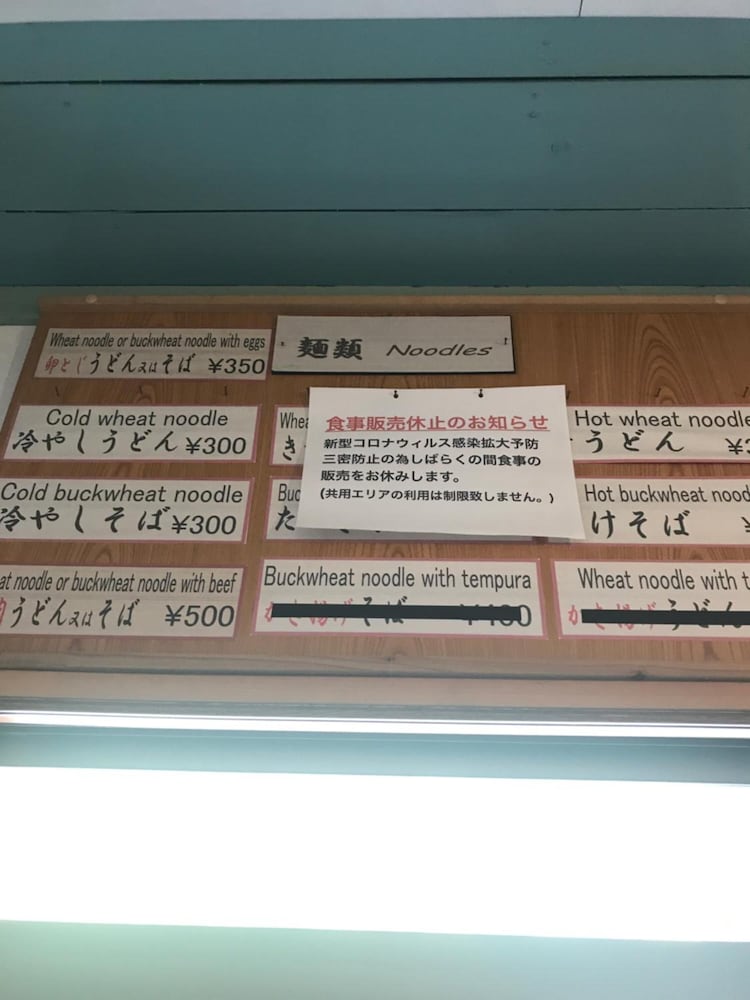 Wheat noodle or buckwheat noodle with eggs
卵とじうどん又はそば ¥350
麺類 Noodles
Cold wheat noodle
冷やしうどん ¥300
食事販売休止のお知らせ
新型コロナウィルス感染拡大予防
三密防止の為しばらくの間食事の
販売をお休みします。
(共用エリアの利用は制限致しません。)
Hot wheat noodle
うどん
Cold buckwheat noodle
冷やしそば ¥300
Hot buckwheat
けそば
noodle or buckwheat noodle with beef
うどん又はそば ¥500
Buckwheat noodle with tempura
かき揚げそば
Wheat noodle with
かき揚げうどん